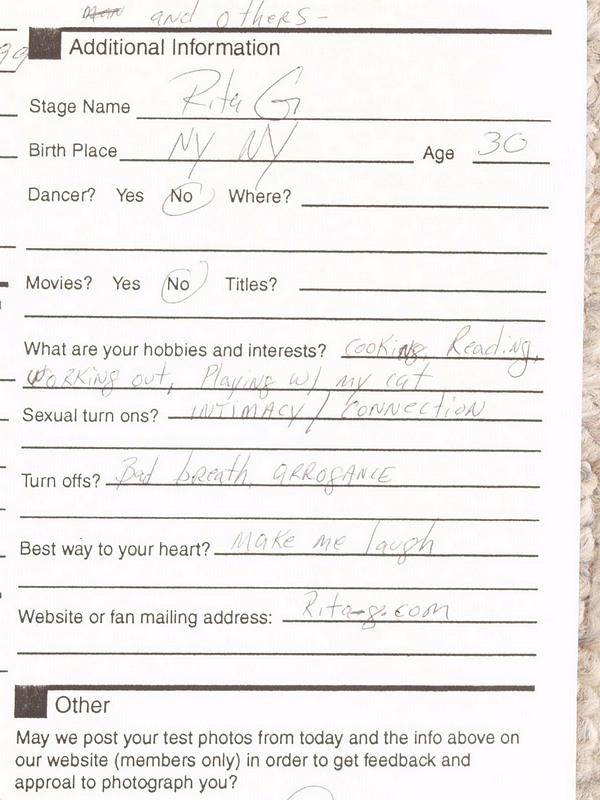 and others -
Additional Information
Stage Name Rita G
Birth Place NY NY Age 30
Dancer? Yes No Where?
Movies? Yes No Titles?
What are your hobbies and interests? cooking, Reading,
working out, Playing w/ my cat
Sexual turn ons? INTIMACY / CONNECTION
Turn offs? Bad breath, ARROGANCE
Best way to your heart? Make me laugh
Website or fan mailing address: Rita-g.com
Other
May we post your test photos from today and the info above on
our website (members only) in order to get feedback and
approal to photograph you?